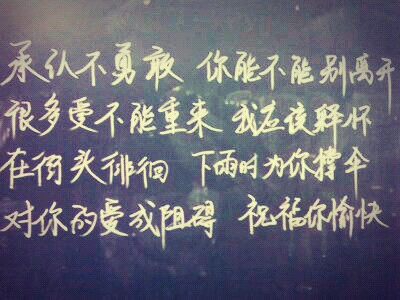 承认不勇敢 你能不能别离开
很多爱不能重来 我应该释怀
在街头徘徊 下雨时为你撑伞
对你的爱成阻碍 祝福你愉快